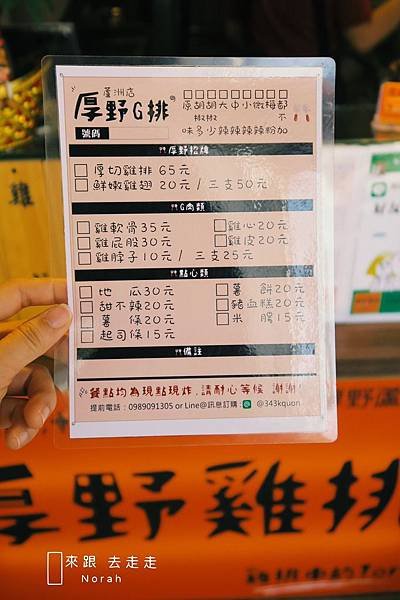 蘆洲店
厚野G排
號碼
原胡胡大中小微梅都
椒椒 不
味多少辣辣辣辣粉加
厚野招牌
厚切雞排 65元
鮮嫩雞翅 20元/三支50元
G肉類
雞軟骨35元 雞心20元
雞屁股30元 雞皮20元
雞脖子10元/三支25元
點心類
地瓜30元 薯餅20元
甜不辣20元 豬血糕20元
薯條20元 米腸15元
起司條15元
備註
餐點均為現點現炸,請耐心等候 謝謝!
提前電話:0989091305 or Line@訊息訂購: @343kquon
雞
厚野雞排
來跟 去走走
Norah